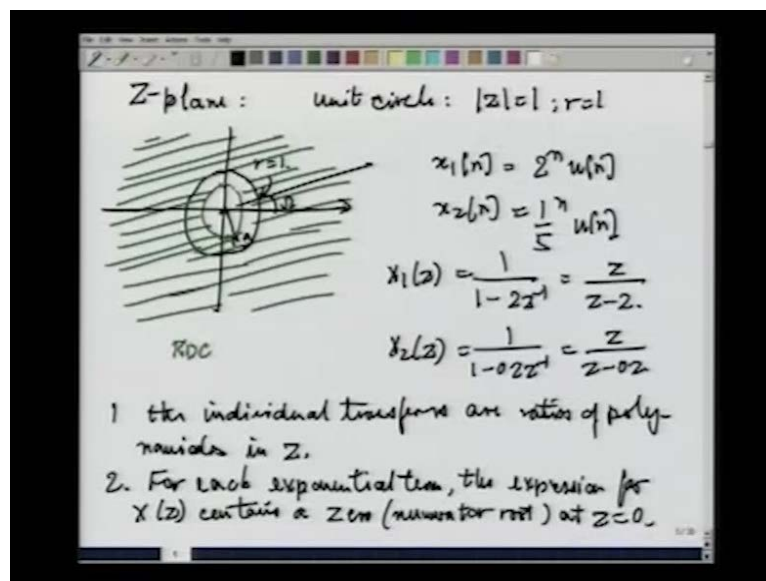 Z-plane : unit circle : |z|=1 ; r=1
r=1.
Ω
x1[n] = 2^n u[n]
x2[n] = 1/5^n u[n]
X1(z) = 1/(1-2z^-1) = z/(z-2.
X2(z) = 1/(1-02z^-1) = z/(z-02
ROC
1 the individual transforms are ratios of poly-
nomials in z.
2. For each exponential term, the expression for
X(z) contains a zero (numerator root) at z=0.